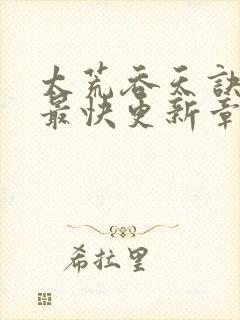 大荒吞天訣
最快更新章
希拉里